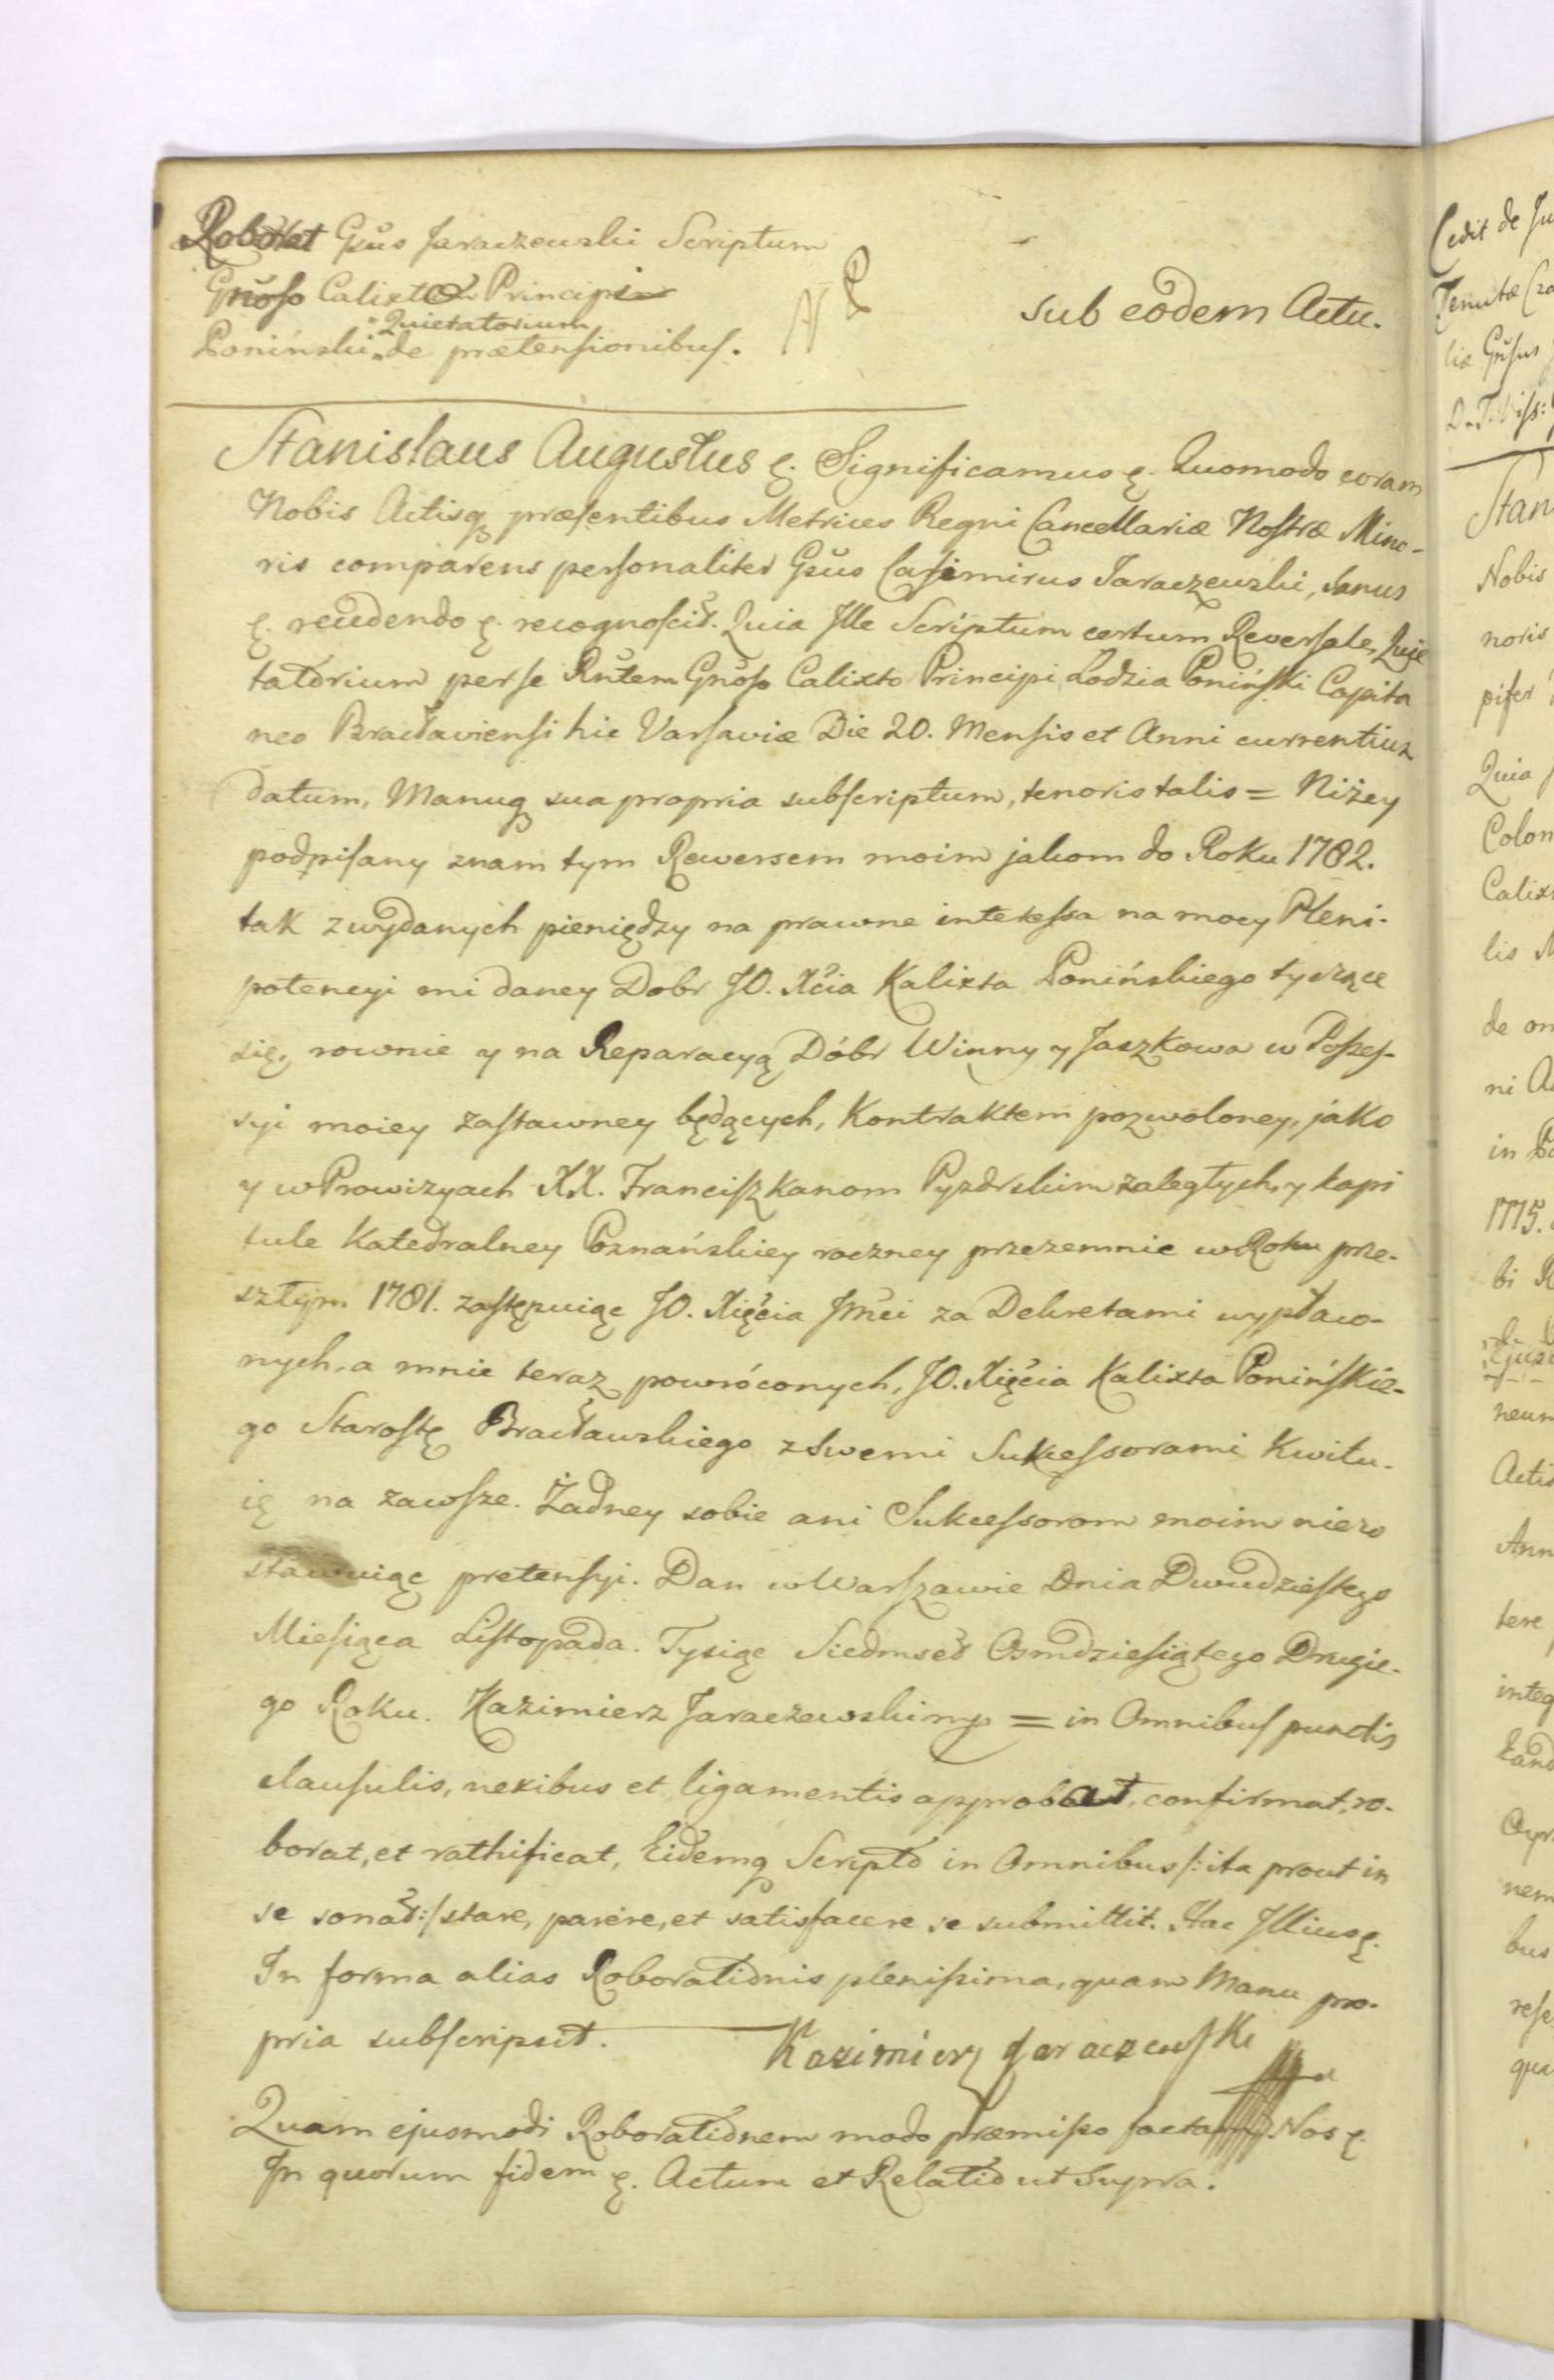 Roborat Gsus Jaraczewski Scriptum
Gnoso Calixto Principi
"Quietatorium
Poniński "de prætensionibus.
NB
sub eodem Actu.
Stanislaus Augustus &. Significamus &. Quomodo coram
Nobis Actisq præsentibus Metrices Regni Cancellariæ Nostræ Mino-
ris comparens personaliter Gsus Casimirus Jaraczewski, Sanus
&. recedendo &. recognoscit. Quia Ille Scriptum certum Reversale, Quie
tatorium per se Rntem Gnoso Calixto Principi Lodzia Poniński Capita
neo Bracłaviensi hic Varsaviæ Die 20. Mensis et Anni currentium
datum, Manuq sua propria subscriptum, tenoris talis = Niżey
podpisany znam tym Rewersem moim jakom do Roku 1782.
tak z wydanych pieniędzy na prawne interessa na mocy Pleni-
potencyi mi daney Dobr JO. Xcia Kalixta Ponińskiego tyczące
się, rownie y na Reparacyą Dóbr Winny y Jaszkowa w Posses-
syi moiey zastawney będących, Kontraktem pozwoloney, jako
y w Prowizyach XX. Franciszkanom Pyzdrskim zaległych, y kapi
tule Katedralney Poznańskiey roczney przezemnie w Roku prze-
szłym 1781. zastępuiąc JO. Xięcia Jmci za Dekretami wypłaco-
nych, a mnie teraz powróconych, JO. Xięcia Kalixta Ponińskie-
go Starostę Bracławskiego z Swemi Sukcessorami Kwitu-
ię na zawsze. Żadney sobie ani Sukcessorom moim niezo
stawuiąc pretensyi. Dan w Warszawie Dnia Dwudziestego
Miesiąca Listopada. Tysiąc Siedmset Osmdziesiątego Drugie-
go Roku. Kazimierz Jaraczewski mp = in Omnibus punctis
clausulis, nexibus et ligamentis approbat, confirmat, ro-
borat, et rathificat, Eidemq Scripto in Omnibus /: ita prout in
se sonat :/ stare, parere, et satisfacere se submittit. Hac Illius &.
In forma alias Roborationis plenissima, quam Manu pro-
pria subscripsit. Kazimierz Jaraczewski
Quam ejusmodi Roborationem modo præmisso factam Nos &.
In quorum fidem &. Actum et Relatio ut Supra.
Cedit de Ju
Tenutæ
liæ Gnsus
Stan
Nobis
noris
pifer
Quia
Colon
Calix
lis
de om
ni A
in
1775.
bi
neum
Actis
Ann
tere
integ
nem
bus
rese
qua